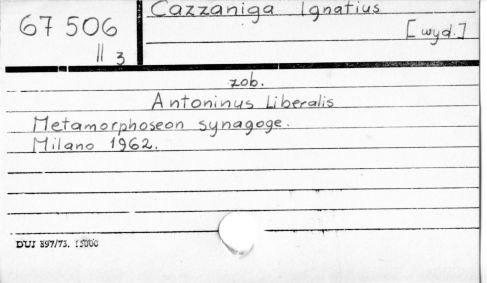 67 506
II 3
Cazzaniga Ignatius
[wyd.]
zob.
Antoninus Liberalis
Metamorphoseon synagoge.
Milano 1962.
DUJ 897/73. 15000